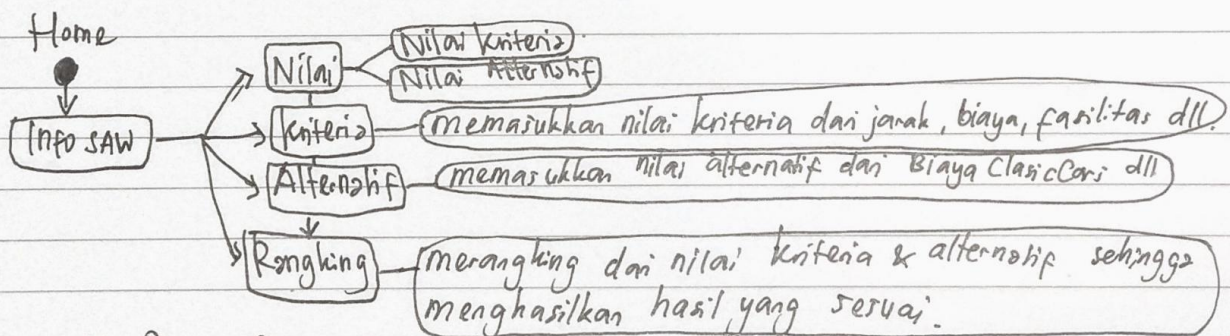 Home
Info SAW
Nilai
Nilai kriteria
Nilai Alternatif
Kriteria
memasukkan nilai kriteria dari jarak, biaya, fasilitas dll.
Alternatif
memasukkan nilai alternatif dari Biaya ClasicCars dll
Rangking
merangking dari nilai kriteria & alternatif sehingga
menghasilkan hasil yang sesuai.